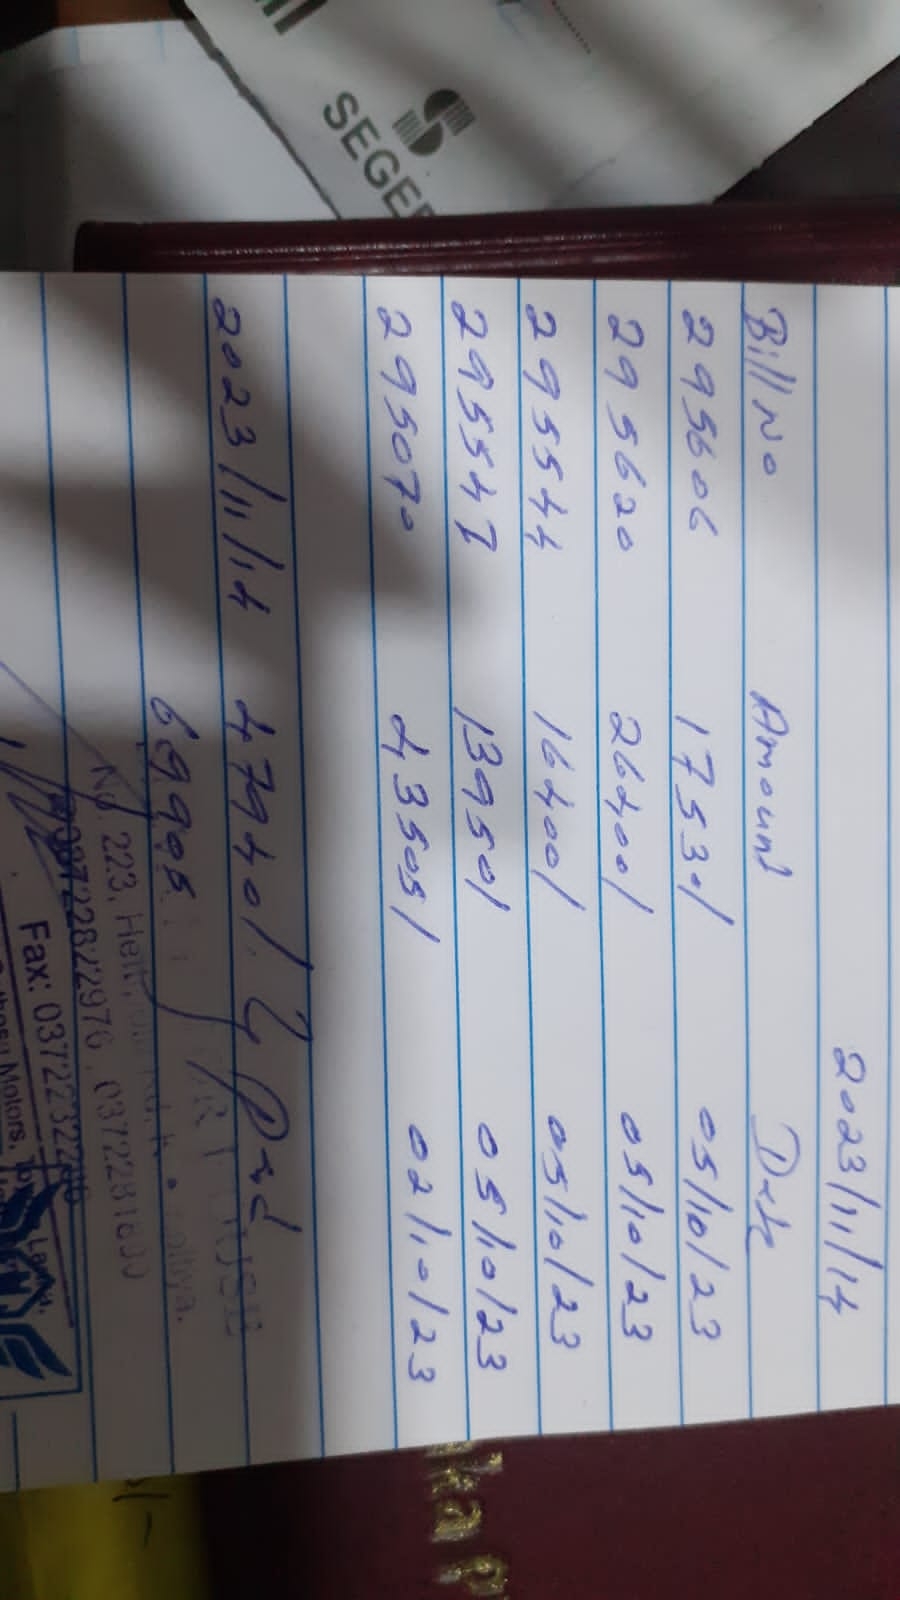 SEGE
2023/11/14
Bill No Amount Date
295606 17530/ 05/10/23
295620 26400/ 05/10/23
295544 16400/ 05/10/23
295547 13950/ 05/10/23
295070 43505/ 02/10/23
2023/11/14 47940/
69995
No. 223,
0372282976, 0372281600
Fax: 037223
Motors,
ka P